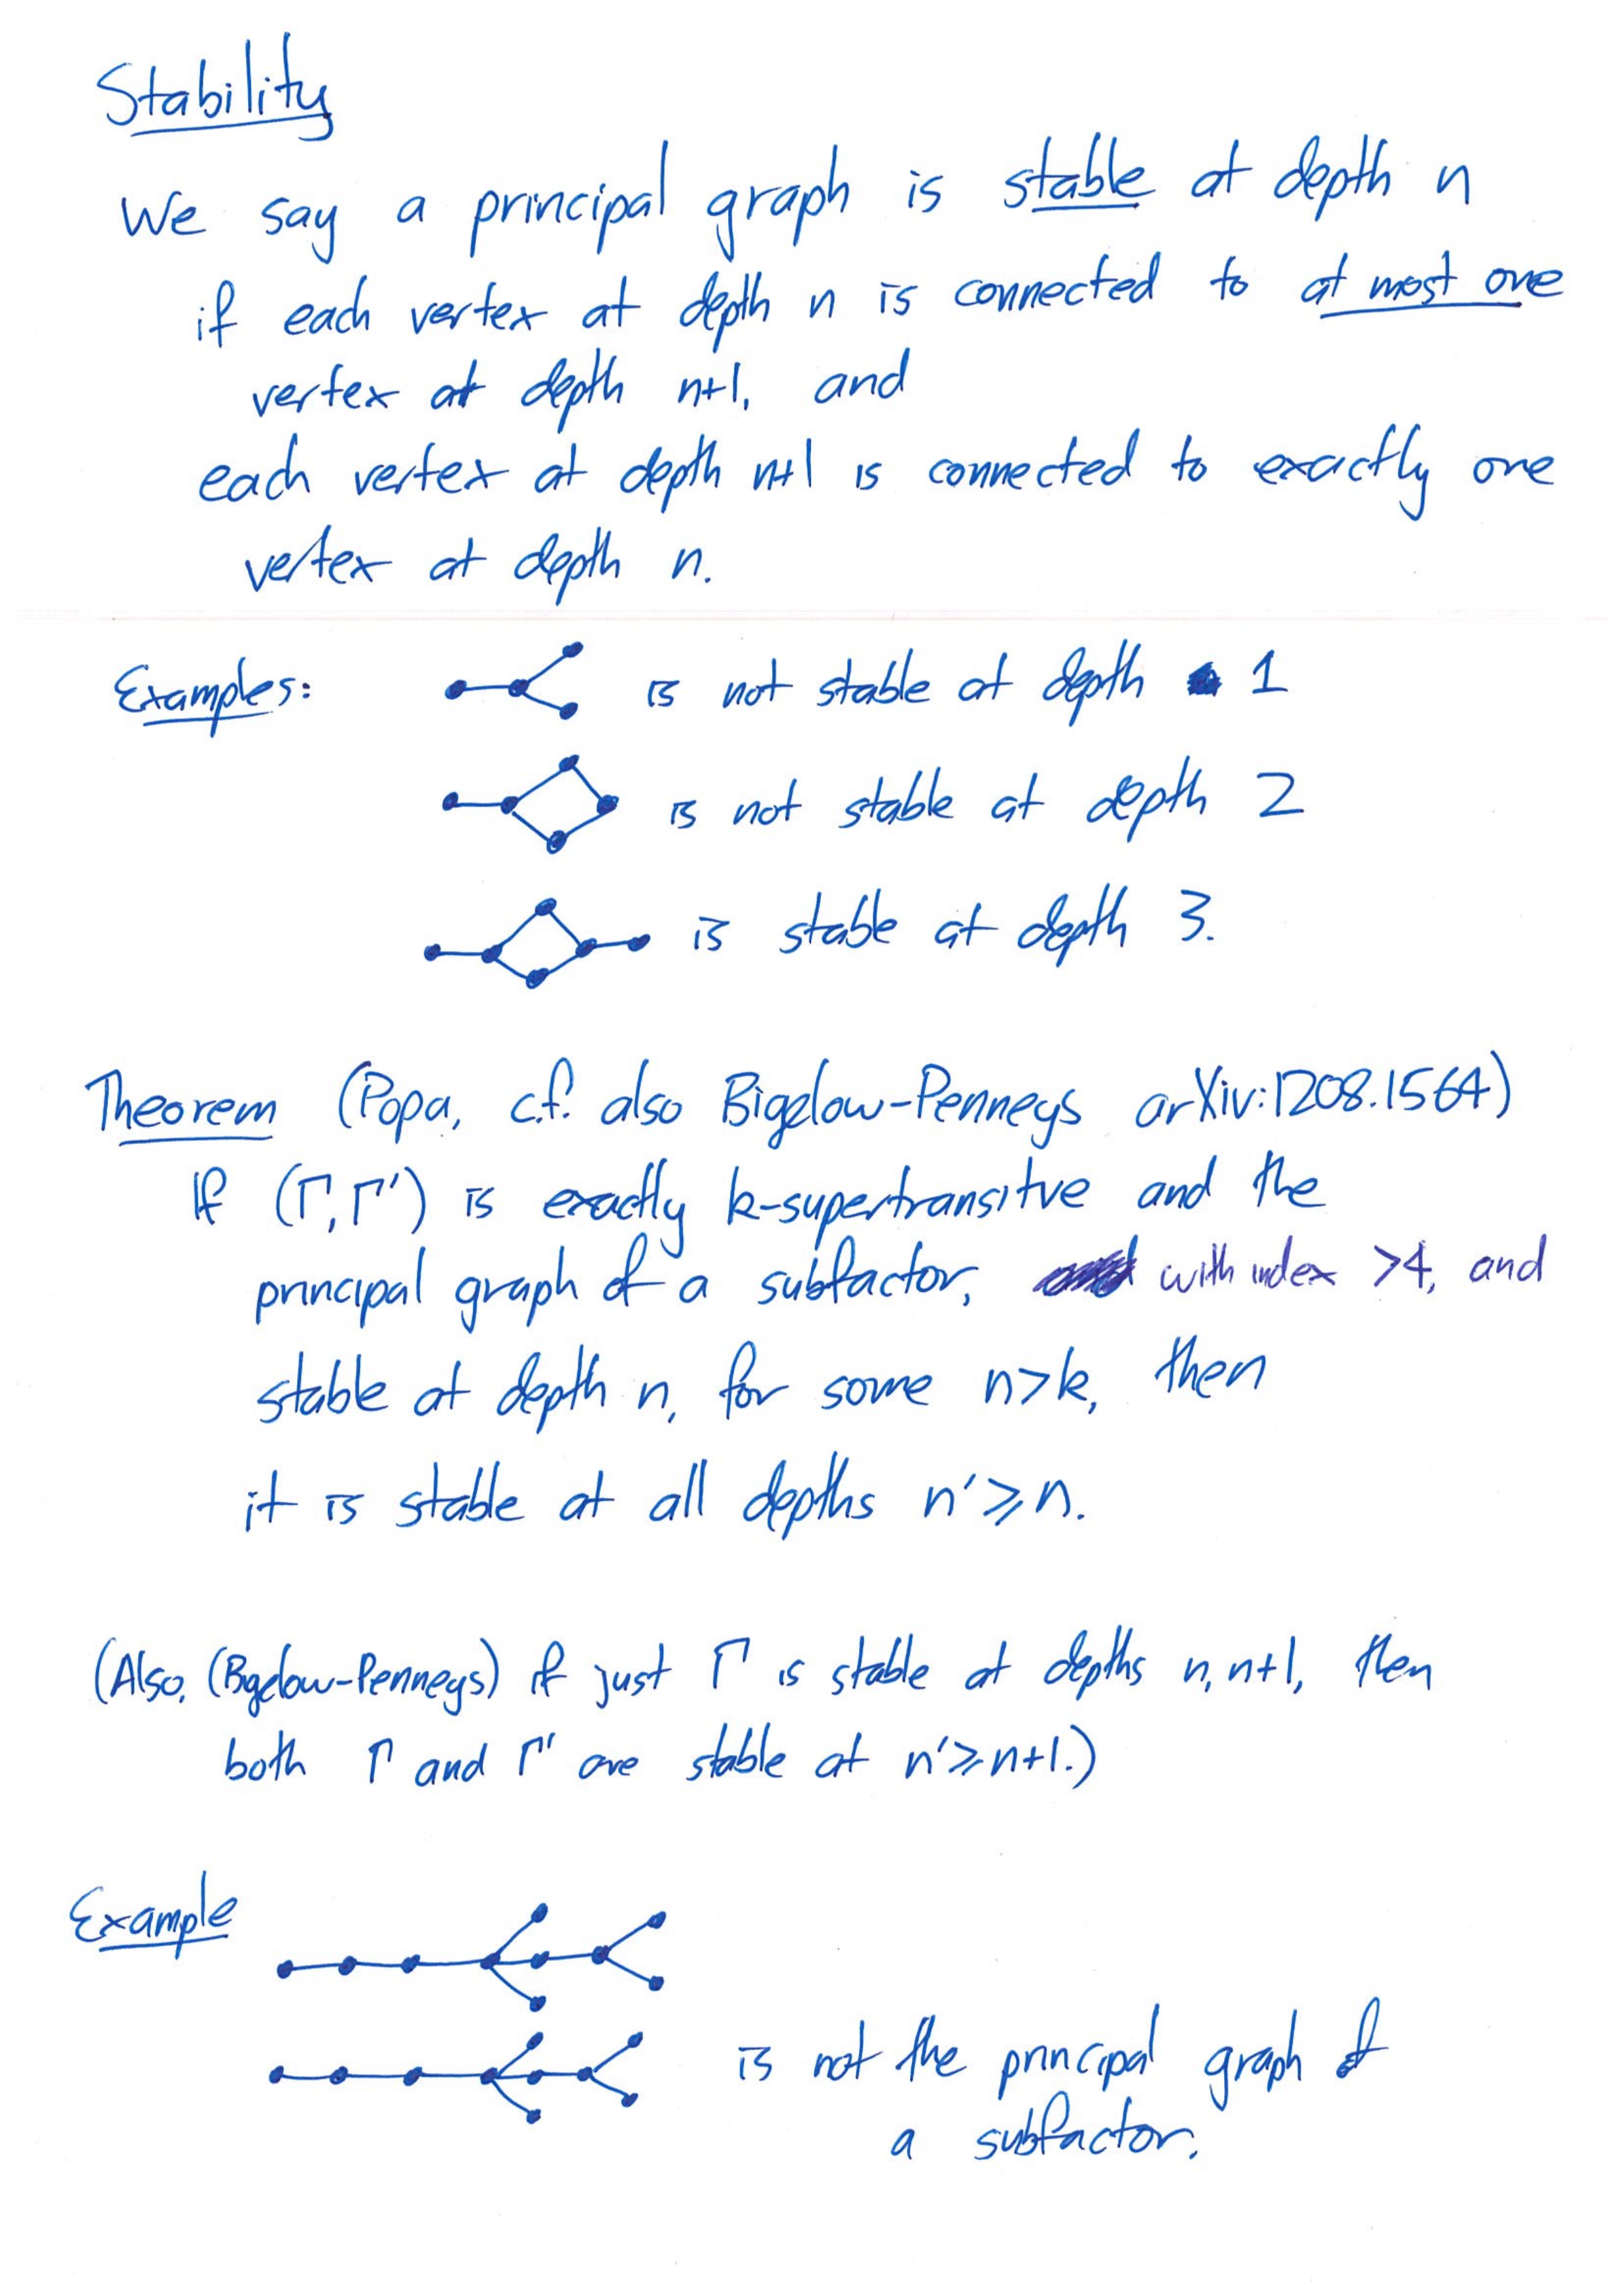 Stability
We say a principal graph is stable at depth n
if each vertex at depth n is connected to at most one
vertex at depth n+1, and
each vertex at depth n+1 is connected to exactly one
vertex at depth n.
Examples: is not stable at depth 1
is not stable at depth 2
is stable at depth 3.
Theorem (Popa, c.f. also Bigelow-Penneys arXiv:1208.1564)
If (Γ,Γ') is exactly k-supertransitve and the
principal graph of a subfactor, with index >4, and
stable at depth n, for some n>k, then
it is stable at all depths n'≥n.
(Also, (Bigelow-Penneys) if just Γ is stable at depths n, n+1, then
both Γ and Γ' are stable at n'≥n+1.)
Example
is not the principal graph of
a subfactor.